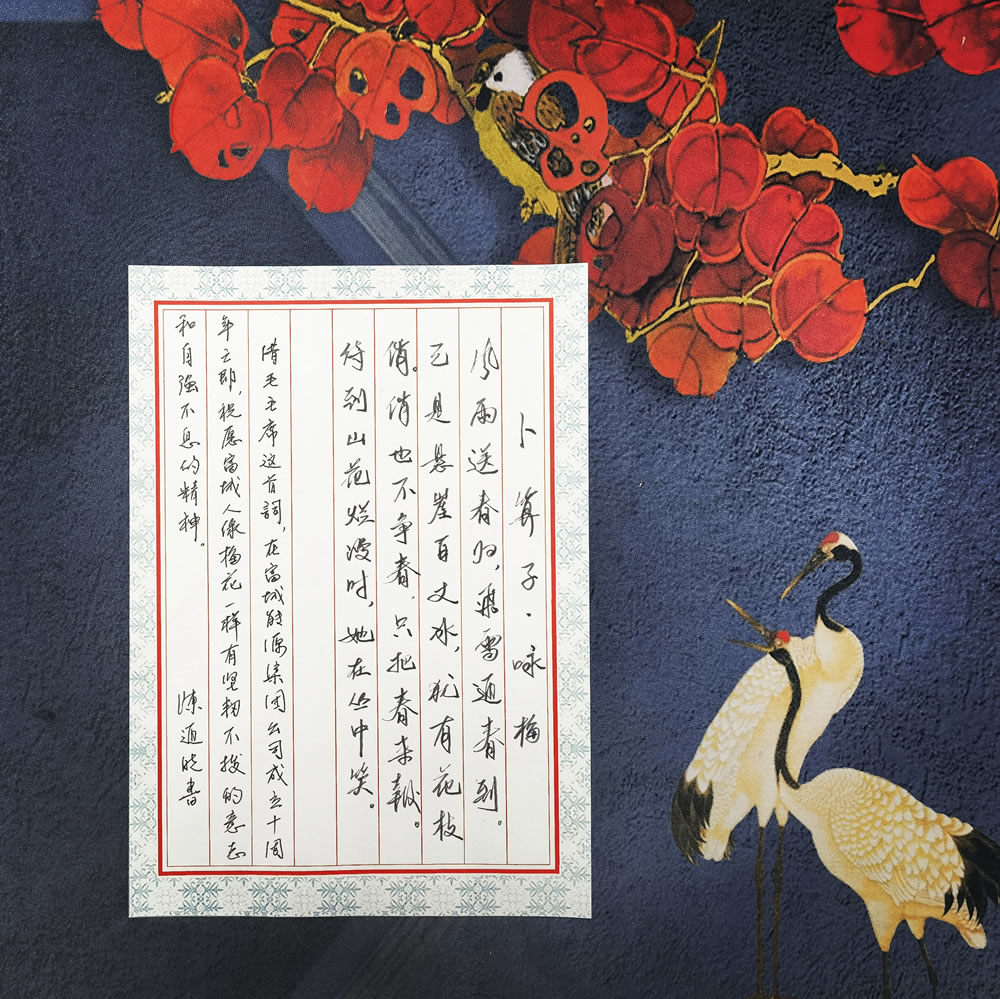 卜算子·咏梅
风雨送春归，飛雪迎春到。
已是悬崖百丈冰，犹有花枝
俏。俏也不争春，只把春来報。
待到山花烂漫时，她在丛中笑。
借毛主席这首詞，在富城能源集团公司成立十周
年之际，祝愿富城人像梅花一样有坚韧不拔的意志
和自强不息的精神。
迎晓書